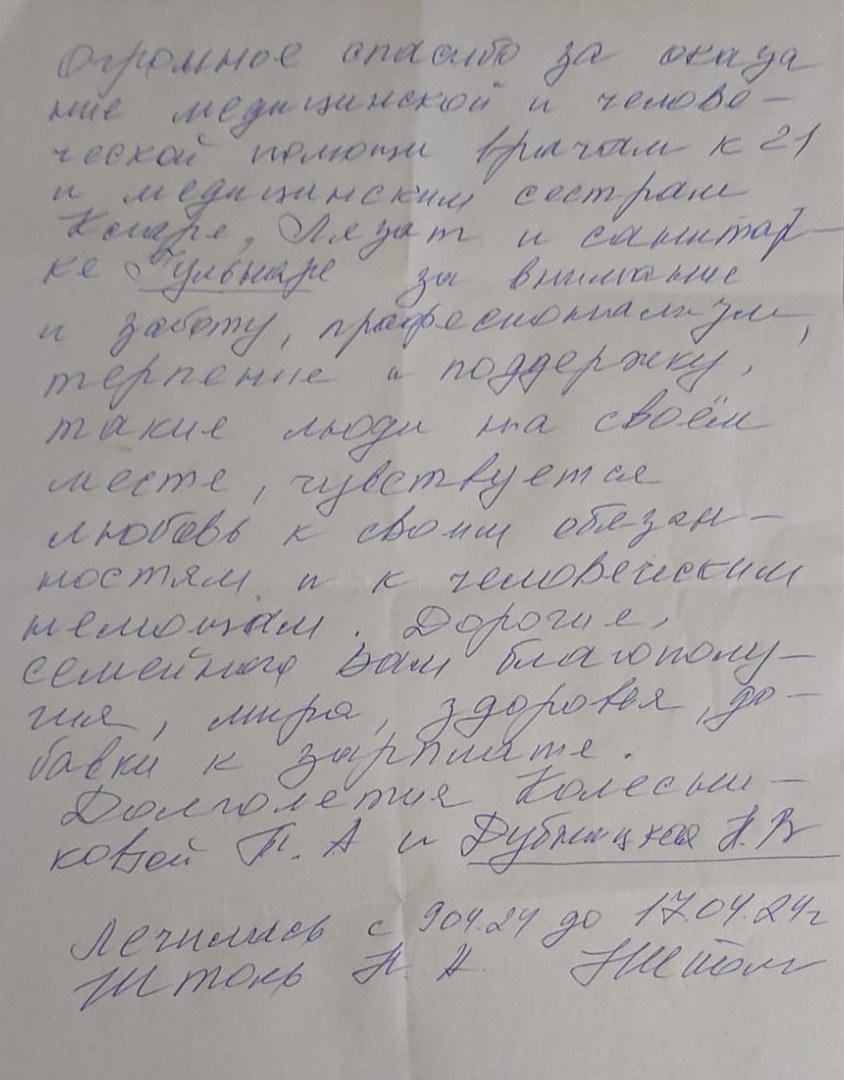 Огромное спасибо за оказа
ние медицинской и челове-
ческой помощи врачам к 21
и медицинским сестрам
Кларе, Лязат и санитар-
ке Гульнаре за внимание
и заботу, професионализм,
терпение и поддержку,
такие люди на своём
месте, чувствуется
любовь к своим обязан-
ностям и к человеческим
немощам. Дорогие,
семейного Вам благополу-
чия, мира, здоровья, до-
бавки к зарплате.
Долголетия Колесни-
ковой Т. А и Дубницкая Н. В
Лечилась с 904.24 до 17.04.24г
Штонь Н. Н.